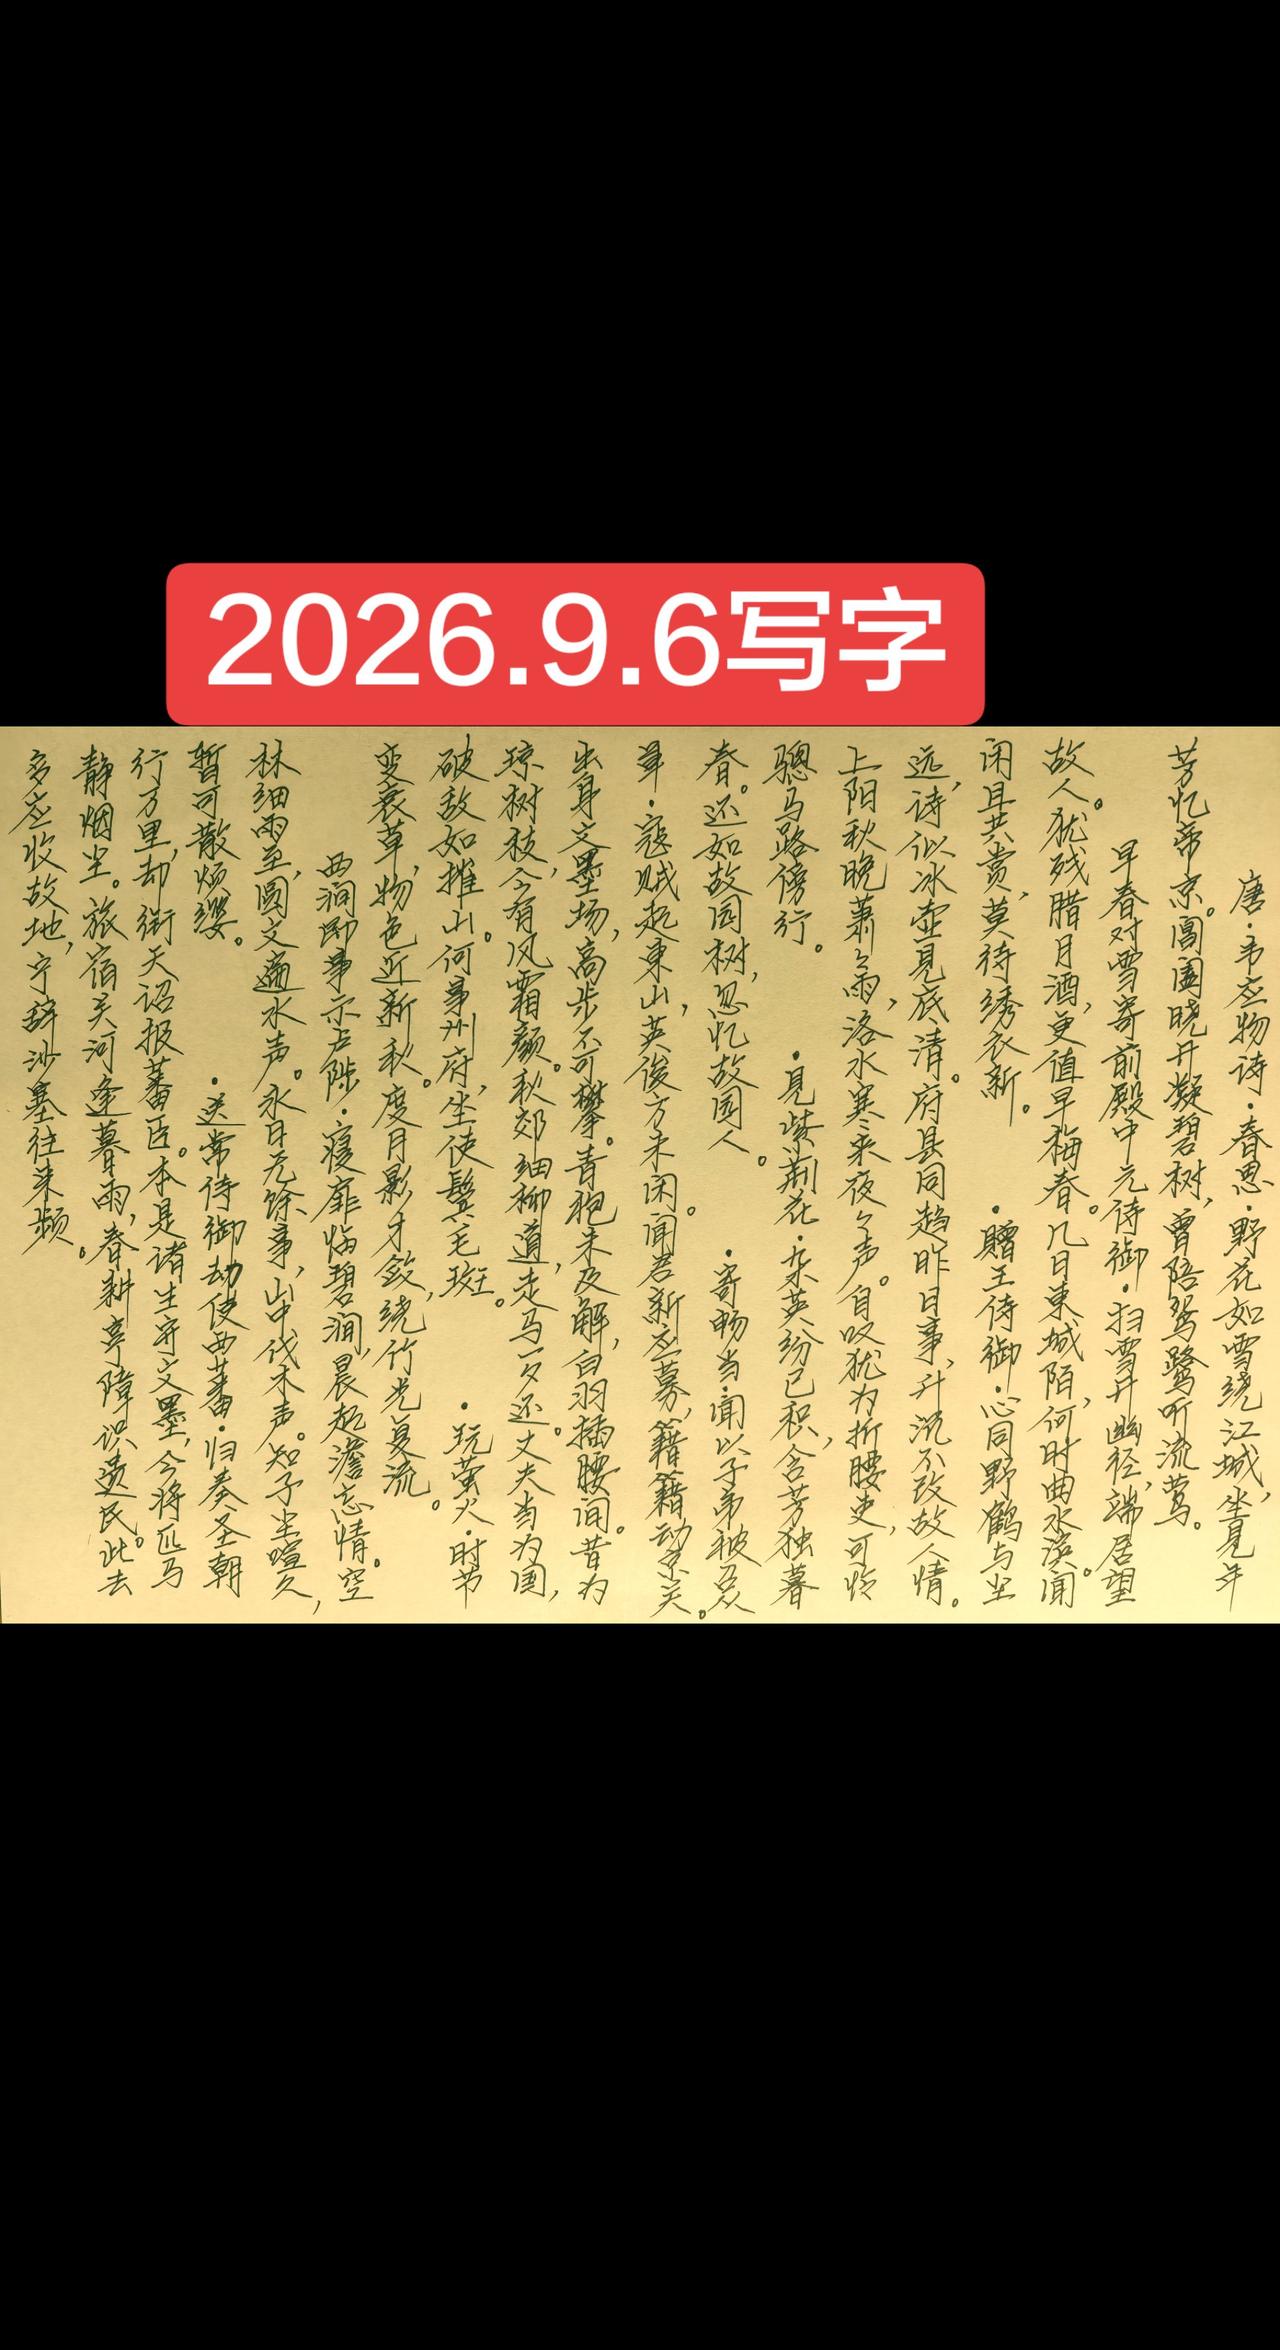 2026.9.6写字
唐·韦应物诗·春思·野花如雪绕江城，坐见年
芳忆帝京。阊阖晓开凝碧树，曾陪鸳鹭听流莺。
早春对雪寄前殿中元侍御·扫雪开幽径，端居望
故人。犹残腊月酒，更值早梅春。几日東城陌，何时曲水滨。闻
闲且共赏，莫待绣衣新。·贈王侍御·心同野鹤与尘
远，诗似冰壶見底清。府县同趋昨日事，升沉不改故人情。
上阳秋晚萧々雨，洛水寒来夜々声。自叹犹为折腰吏，可怜
骢马路傍行。·見紫荆花·杂英纷已积，含芳独暮
春。还如故园树，忽忆故园人。·寄畅当·闻以子弟被召从
军·寇贼起東山，英俊方未闲。闻君新应募，籍籍动京关。
出身文墨场，高步不可攀。青袍未及解，白羽插腰间。昔为
琼树枝，今有风霜颜。秋郊细柳道，走马一夕还。丈夫当为国，
破敌如摧山。何事州府，坐使鬓毛斑。·玩萤火·时节
变衰草，物色近新秋。度月影才敛，绕竹光复流。
西涧即事示卢陟·寝扉临碧涧，晨起澹忘情。空
林细雨至，圆文遍水声。永日无馀事，山中伐木声。知子尘喧久，
暂可散烦缨。·送常侍御却使西蕃·归奏圣朝
行万里，却衔天诏报蕃臣。本是诸生守文墨，今将匹马
静烟尘。旅宿关河逢暮雨，春耕亭障识遗民。此去
多应收故地，宁辞沙塞往来频。